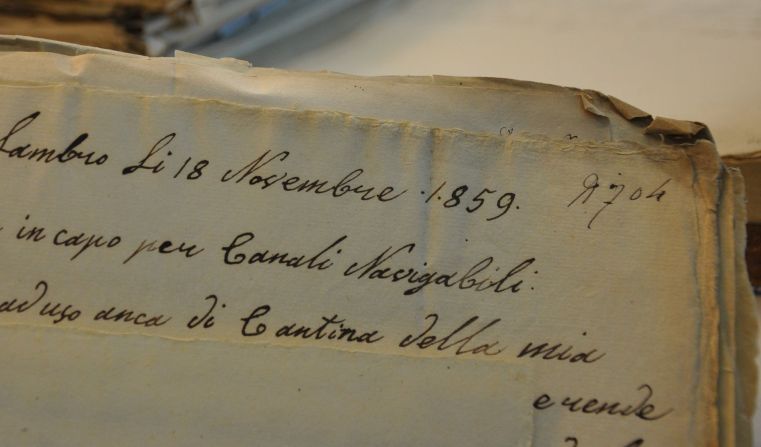 Lambro Li 18 Novembre .1.859. N 704
in capo per Canali Navigabili.
ad uso anca di Cantina della mia
erende